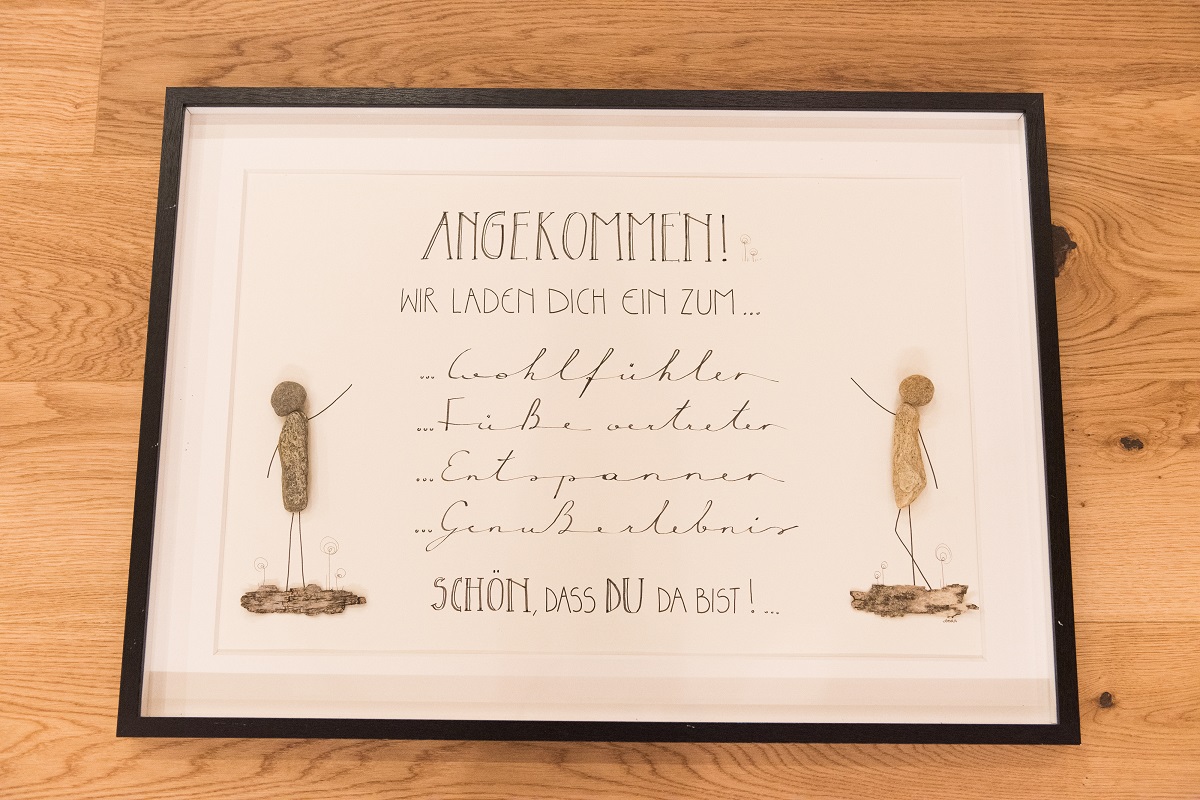 ANGEKOMMEN!
WIR LADEN DICH EIN ZUM...
... Wohlfühlen
... Füße vertreten
... Entspannen
... Genußerlebnis
SCHÖN, DASS DU DA BIST!...